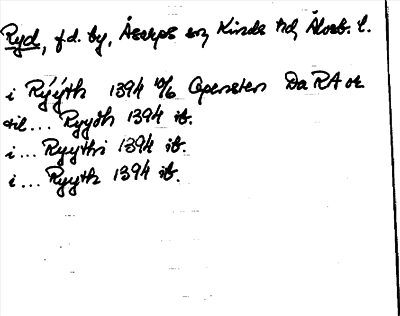 Ryd, f.d. by, Åsarps sn, Kinds hd, Älvsb. l.
i Rÿÿth 1394 10/6 Opensten Da RA or
til... Ryydh 1394 ib.
i... Ryythi 1394 ib.
i... Ryyth 1394 ib.